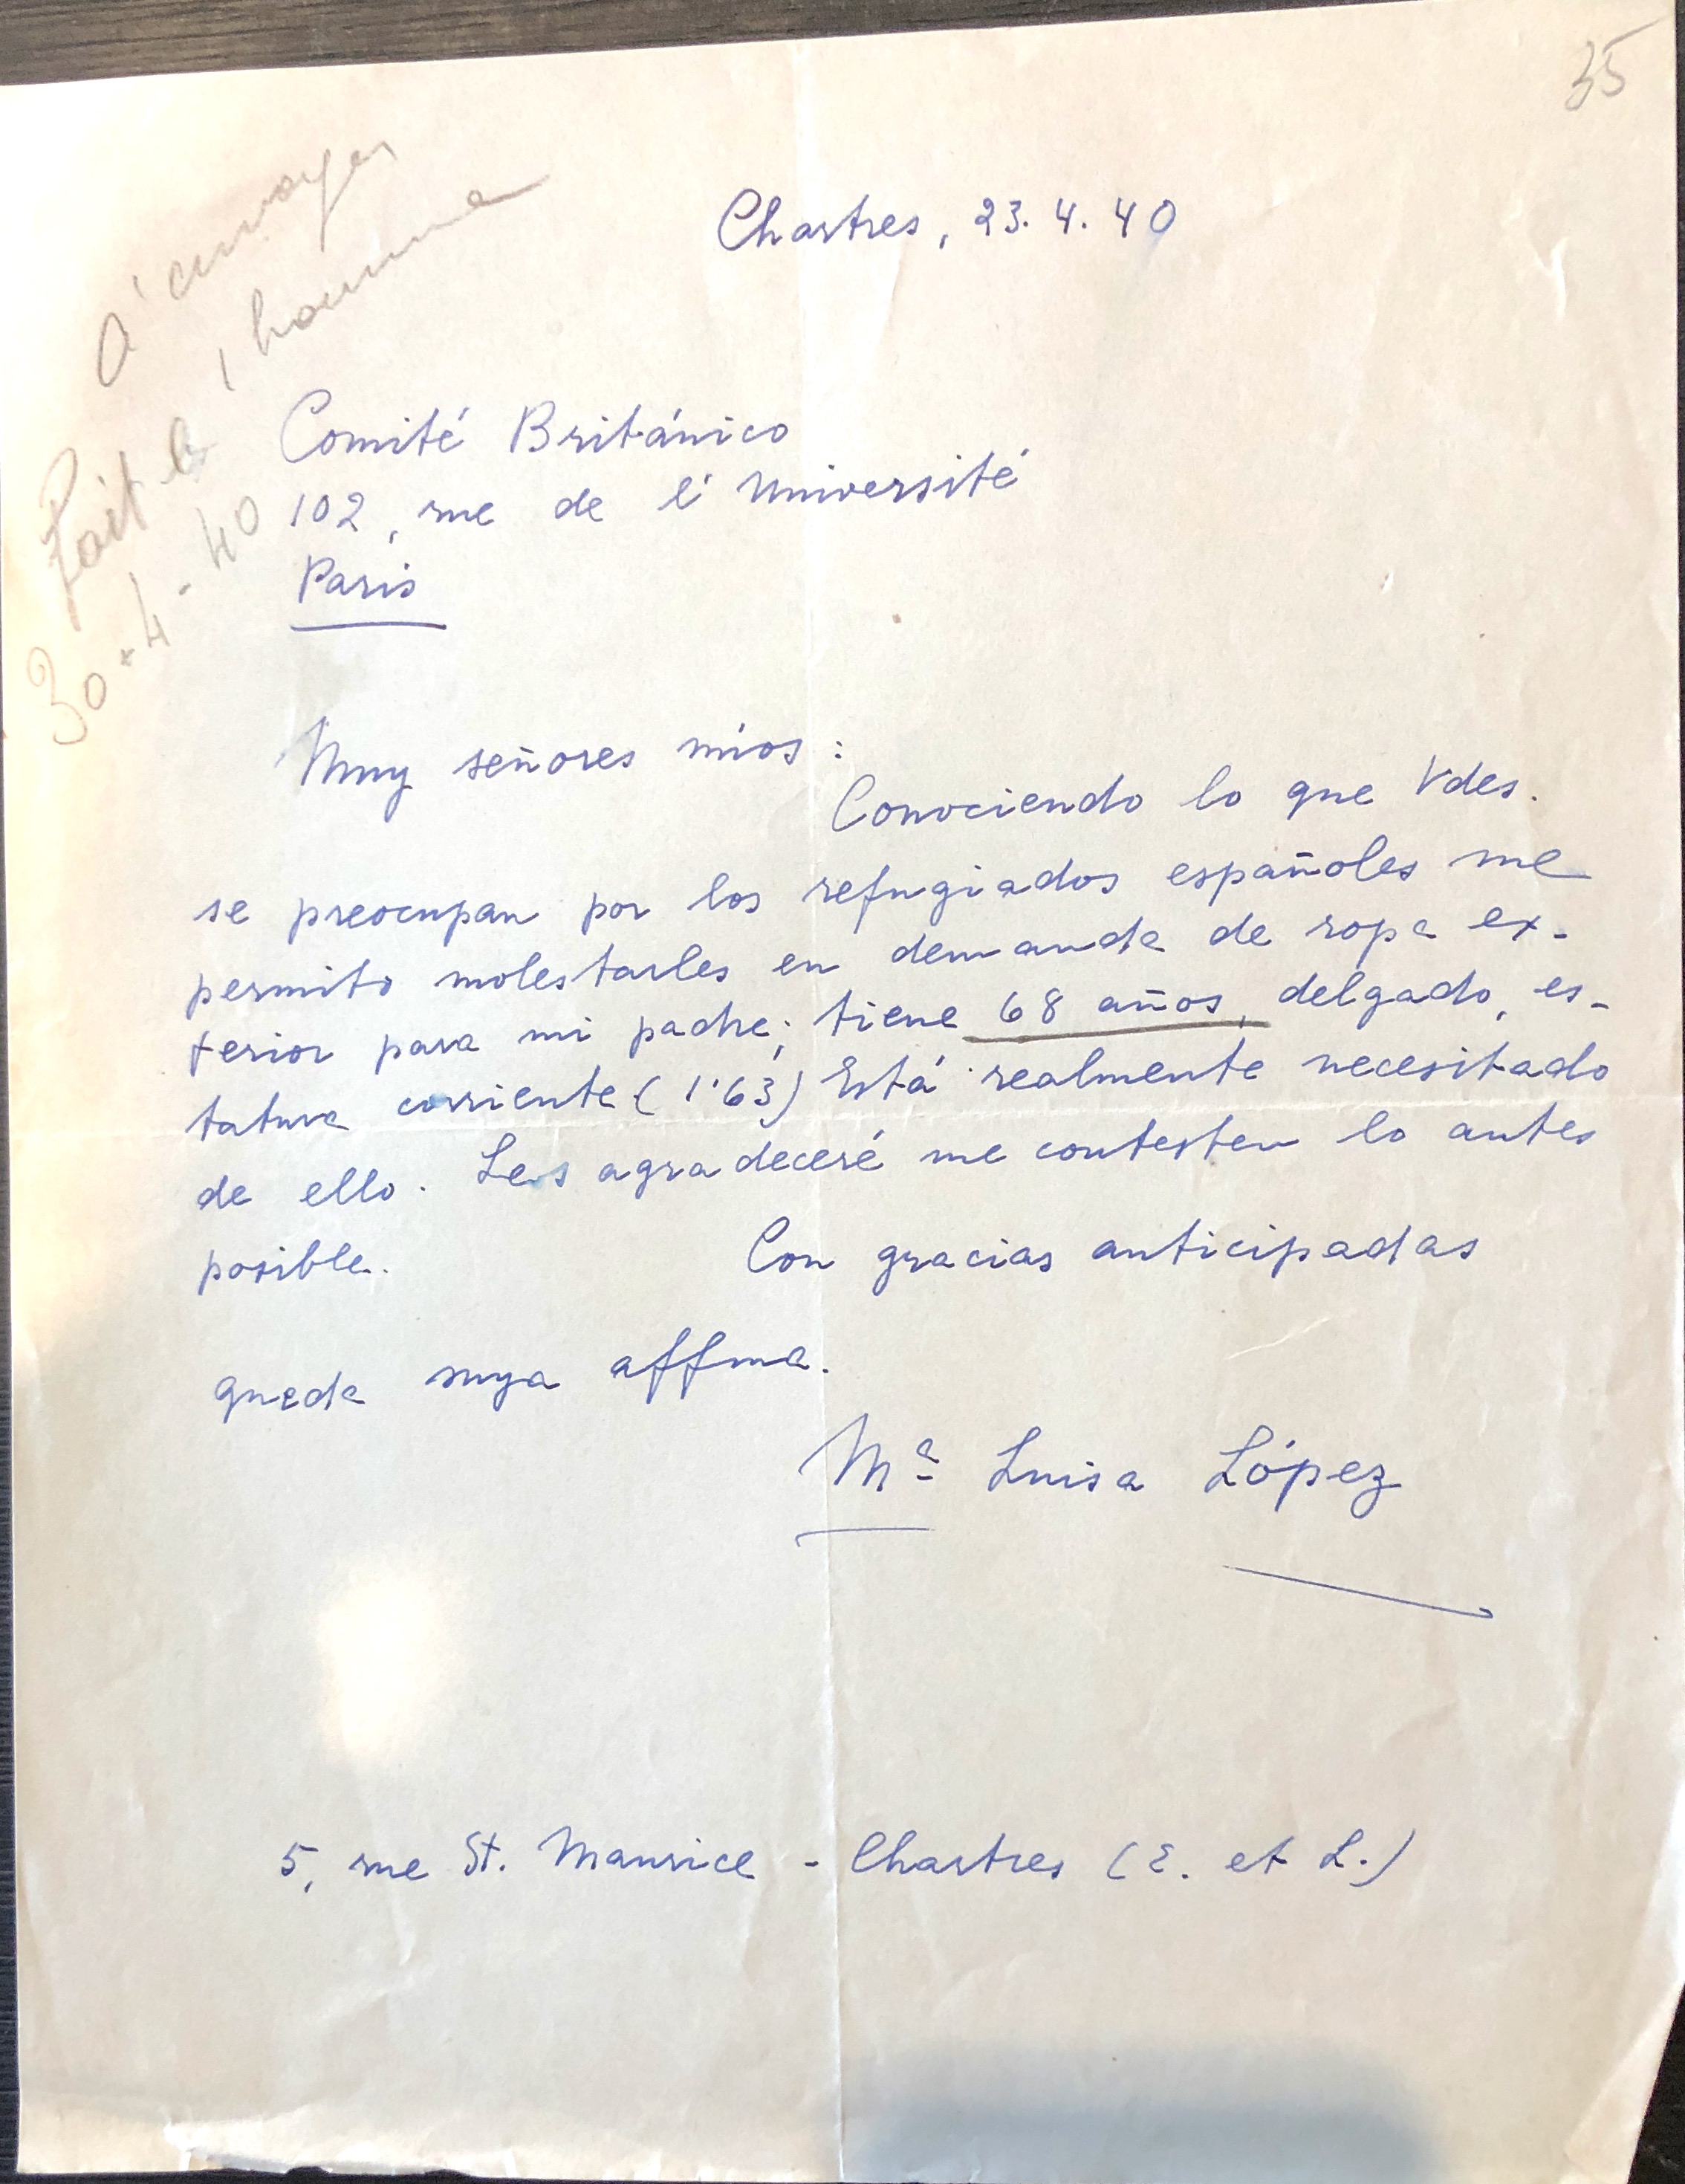 35
à envoyer
1 homme
Fait le
30-4-40
Chartres, 23.4.40
Comité Británico
102, rue de l'Université
Paris
Muy señores míos:
Conociendo lo que Vdes.
se preocupan por los refugiados españoles me
permito molestarles en demanda de ropa ex-
terior para mi padre; tiene 68 años, delgado, es-
tatura corriente (1'63) Está realmente necesitado
de ello. Les agradeceré me contesten lo antes
posible.
Con gracias anticipadas
queda suya affma.
Mª Luisa López
5, rue St. Maurice - Chartres (E. et L.)